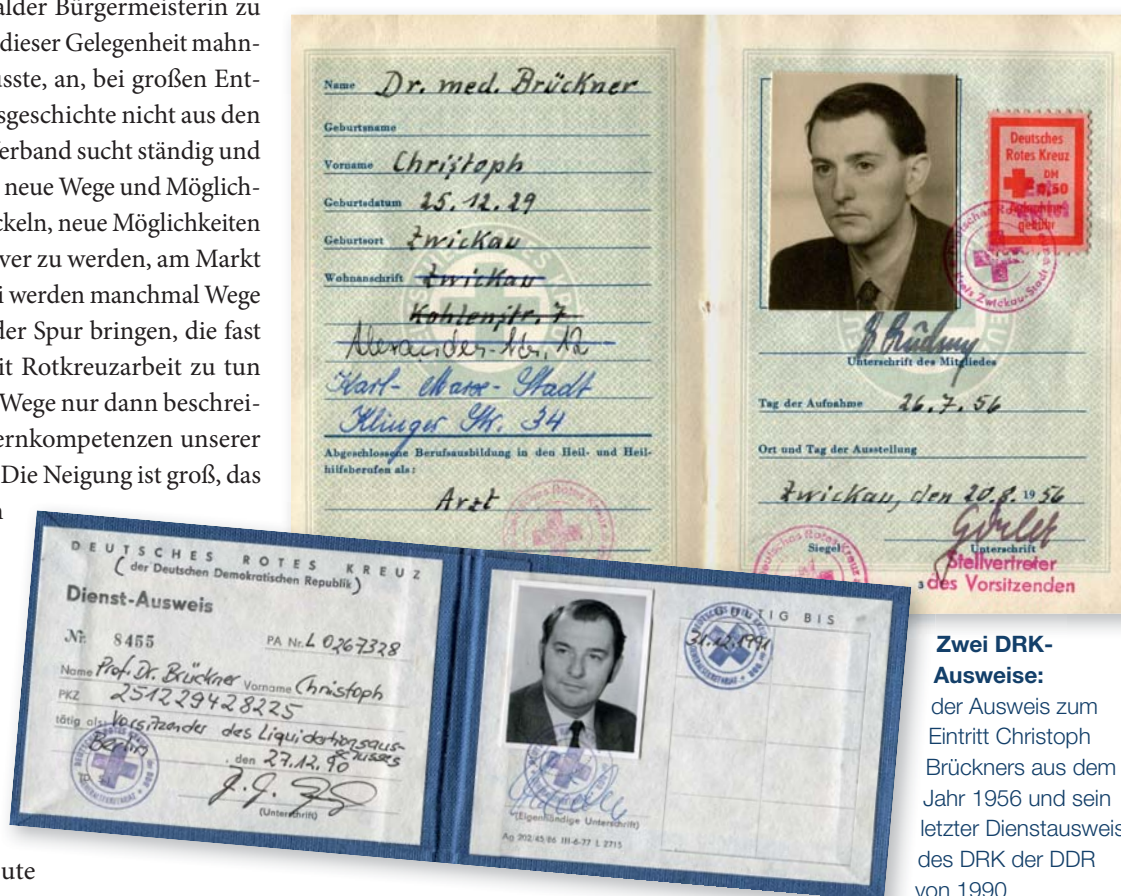 alder Bürgermeisterin zu
dieser Gelegenheit mahn-
usste, an, bei großen Ent-
sgeschichte nicht aus den
erband sucht ständig und
neue Wege und Möglich-
ckeln, neue Möglichkeiten
ver zu werden, am Markt
i werden manchmal Wege
der Spur bringen, die fast
it Rotkreuzarbeit zu tun
Wege nur dann beschrei-
ernkompetenzen unserer
Die Neigung ist groß, das
ute
Name Dr. med. Brückner
Geburtsname
Vorname Christoph
Geburtsdatum 25.12.29
Geburtsort Zwickau
Wohnanschrift Zwickau
Kohlenstr. 7
Alexander-Str. 12
Karl-Marx-Stadt
Klinger Str. 34
Abgeschlossene Berufsausbildung in den Heil- und Heil-
hilfsberufen als:
Arzt
Deutsches
Rotes Kreuz
DM
0,50
gebühr
Kreis Zwickau-Stadt
Unterschrift des Mitgliedes
Tag der Aufnahme 26.7.56
Ort und Tag der Ausstellung
Zwickau, den 20.8.1956
Siegel
Unterschrift
Stellvertreter
3 des Vorsitzenden
DEUTSCHES ROTES KREUZ
(der Deutschen Demokratischen Republik)
Dienst-Ausweis
Nr. 8455 PA Nr. L 0267328
Name Prof. Dr. Brückner Vorname Christoph
PKZ 251229428225
tätig als: Vorsitzender des Liquidationsaus-
schusses
Berlin, den 27.12.90
(Unterschrift)
GÜLTIG BIS
31.12.1991
(Eigenhändige Unterschrift)
Ag 202/45/86 III-6-77 L 2715
Zwei DRK-
Ausweise:
der Ausweis zum
Eintritt Christoph
Brückners aus dem
Jahr 1956 und sein
letzter Dienstausweis
des DRK der DDR
von 1990